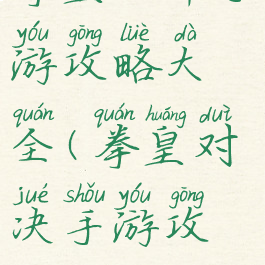 yóu gōng lüè dà
游攻略大
quán quán huáng duì
全(拳皇对
jué shǒu yóu gōng
决手游攻